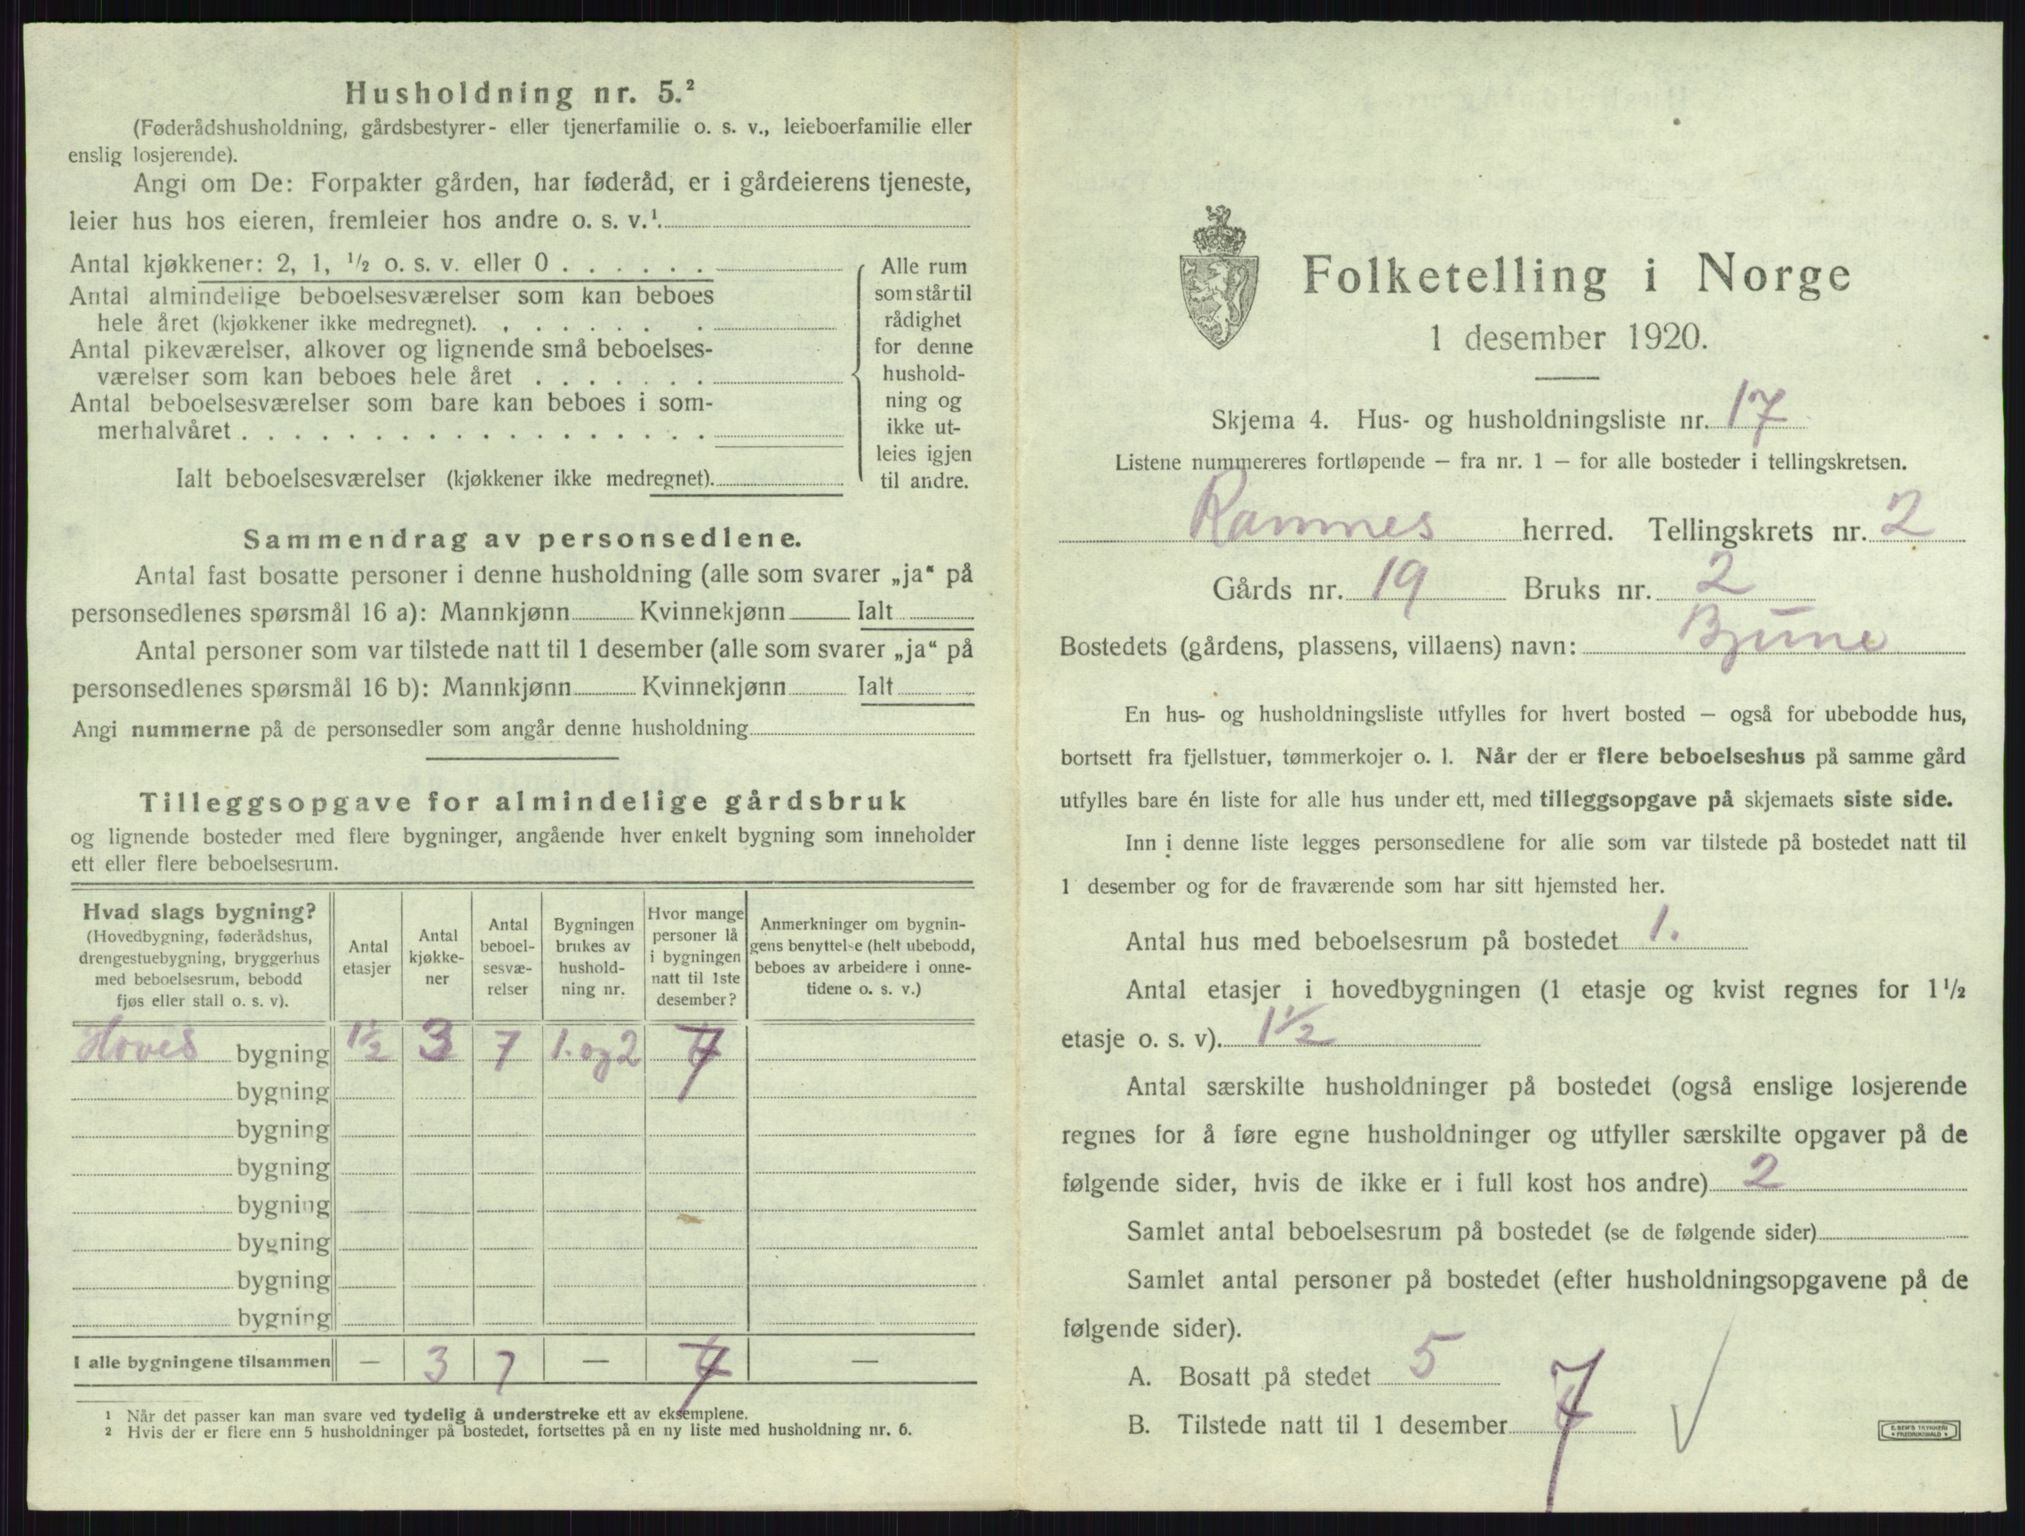 Husholdning nr. 5.²
(Føderådshusholdning, gårdsbestyrer- eller tjenerfamilie o. s. v., leieboerfamilie eller
enslig losjerende).
Angi om De: Forpakter gården, har føderåd, er i gårdeierens tjeneste,
leier hus hos eieren, fremleier hos andre o. s. v.¹
Antal kjøkkener: 2, 1, ½ o. s. v. eller 0 . . . . . .
Antal almindelige beboelsesværelser som kan beboes
hele året (kjøkkener ikke medregnet). . . . . . . .
Antal pikeværelser, alkover og lignende små beboelses-
værelser som kan beboes hele året . . . . . . .
Antal beboelsesværelser som bare kan beboes i som-
merhalvåret . . . . . . . . . . . . . . . . . .
Ialt beboelsesværelser (kjøkkener ikke medregnet).
Alle rum
som står til
rådighet
for denne
hushold-
ning og
ikke ut-
leies igjen
til andre.
Sammendrag av personsedlene.
Antal fast bosatte personer i denne husholdning (alle som svarer „ja“ på
personsedlenes spørsmål 16 a): Mannkjønn Kvinnekjønn Ialt
Antal personer som var tilstede natt til 1 desember (alle som svarer „ja“ på
personsedlenes spørsmål 16 b): Mannkjønn Kvinnekjønn Ialt
Angi nummerne på de personsedler som angår denne husholdning
Tilleggsopgave for almindelige gårdsbruk
og lignende bosteder med flere bygninger, angående hver enkelt bygning som inneholder
ett eller flere beboelsesrum.
Hvad slags bygning?
(Hovedbygning, føderådshus,
drengestuebygning, bryggerhus
med beboelsesrum, bebodd
fjøs eller stall o. s. v).
Antal
etasjer
Antal
kjøkke-
ner
Antal
beboel-
sesvæ-
relser
Bygningen
brukes av
hushold-
ning nr.
Hvor mange
personer lå
i bygningen
natt til 1ste
desember?
Anmerkninger om bygnin-
gens benyttelse (helt ubebodd,
beboes av arbeidere i onne-
tidene o. s. v.)
Hoved bygning 1½ 3 7 1. og 2 7
bygning
bygning
bygning
bygning
bygning
bygning
bygning
I alle bygningene tilsammen — 3 7 — 7 —
¹ Når det passer kan man svare ved tydelig å understreke ett av eksemplene.
² Hvis der er flere enn 5 husholdninger på bostedet, fortsettes på en ny liste med husholdning nr. 6.
Folketelling i Norge
1 desember 1920.
Skjema 4. Hus- og husholdningsliste nr. 17
Listene nummereres fortløpende — fra nr. 1 — for alle bosteder i tellingskretsen.
Ramnes herred. Tellingskrets nr. 2
Gårds nr. 19 Bruks nr. 2
Bostedets (gårdens, plassens, villaens) navn: Bjune
En hus- og husholdningsliste utfylles for hvert bosted — også for ubebodde hus,
bortsett fra fjellstuer, tømmerkojer o. l. Når der er flere beboelseshus på samme gård
utfylles bare én liste for alle hus under ett, med tilleggsopgave på skjemaets siste side.
Inn i denne liste legges personsedlene for alle som var tilstede på bostedet natt til
1 desember og for de fraværende som har sitt hjemsted her.
Antal hus med beboelsesrum på bostedet 1.
Antal etasjer i hovedbygningen (1 etasje og kvist regnes for 1½
etasje o. s. v). 1½
Antal særskilte husholdninger på bostedet (også enslige losjerende
regnes for å føre egne husholdninger og utfyller særskilte opgaver på de
følgende sider, hvis de ikke er i full kost hos andre) 2
Samlet antal beboelsesrum på bostedet (se de følgende sider)
Samlet antal personer på bostedet (efter husholdningsopgavene på de
følgende sider).
A. Bosatt på stedet 5
B. Tilstede natt til 1 desember 7